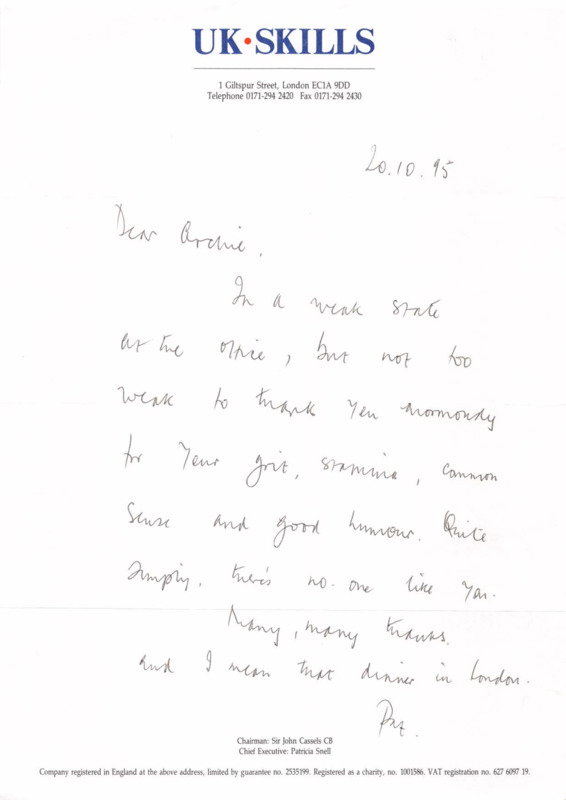 UK·SKILLS
1 Giltspur Street, London EC1A 9DD
Telephone 0171-294 2420 Fax 0171-294 2430
20.10.95
Dear Archie,
In a weak state
at the office, but not too
weak to thank you enormously
for your grit, stamina, common
sense and good humour. Quite
simply, there's no-one like you.
Many, many thanks.
and I mean that dinner in London.
Pat.
Chairman: Sir John Cassels CB
Chief Executive: Patricia Snell
Company registered in England at the above address, limited by guarantee no. 2535199. Registered as a charity, no. 1001586. VAT registration no. 627 6097 19.